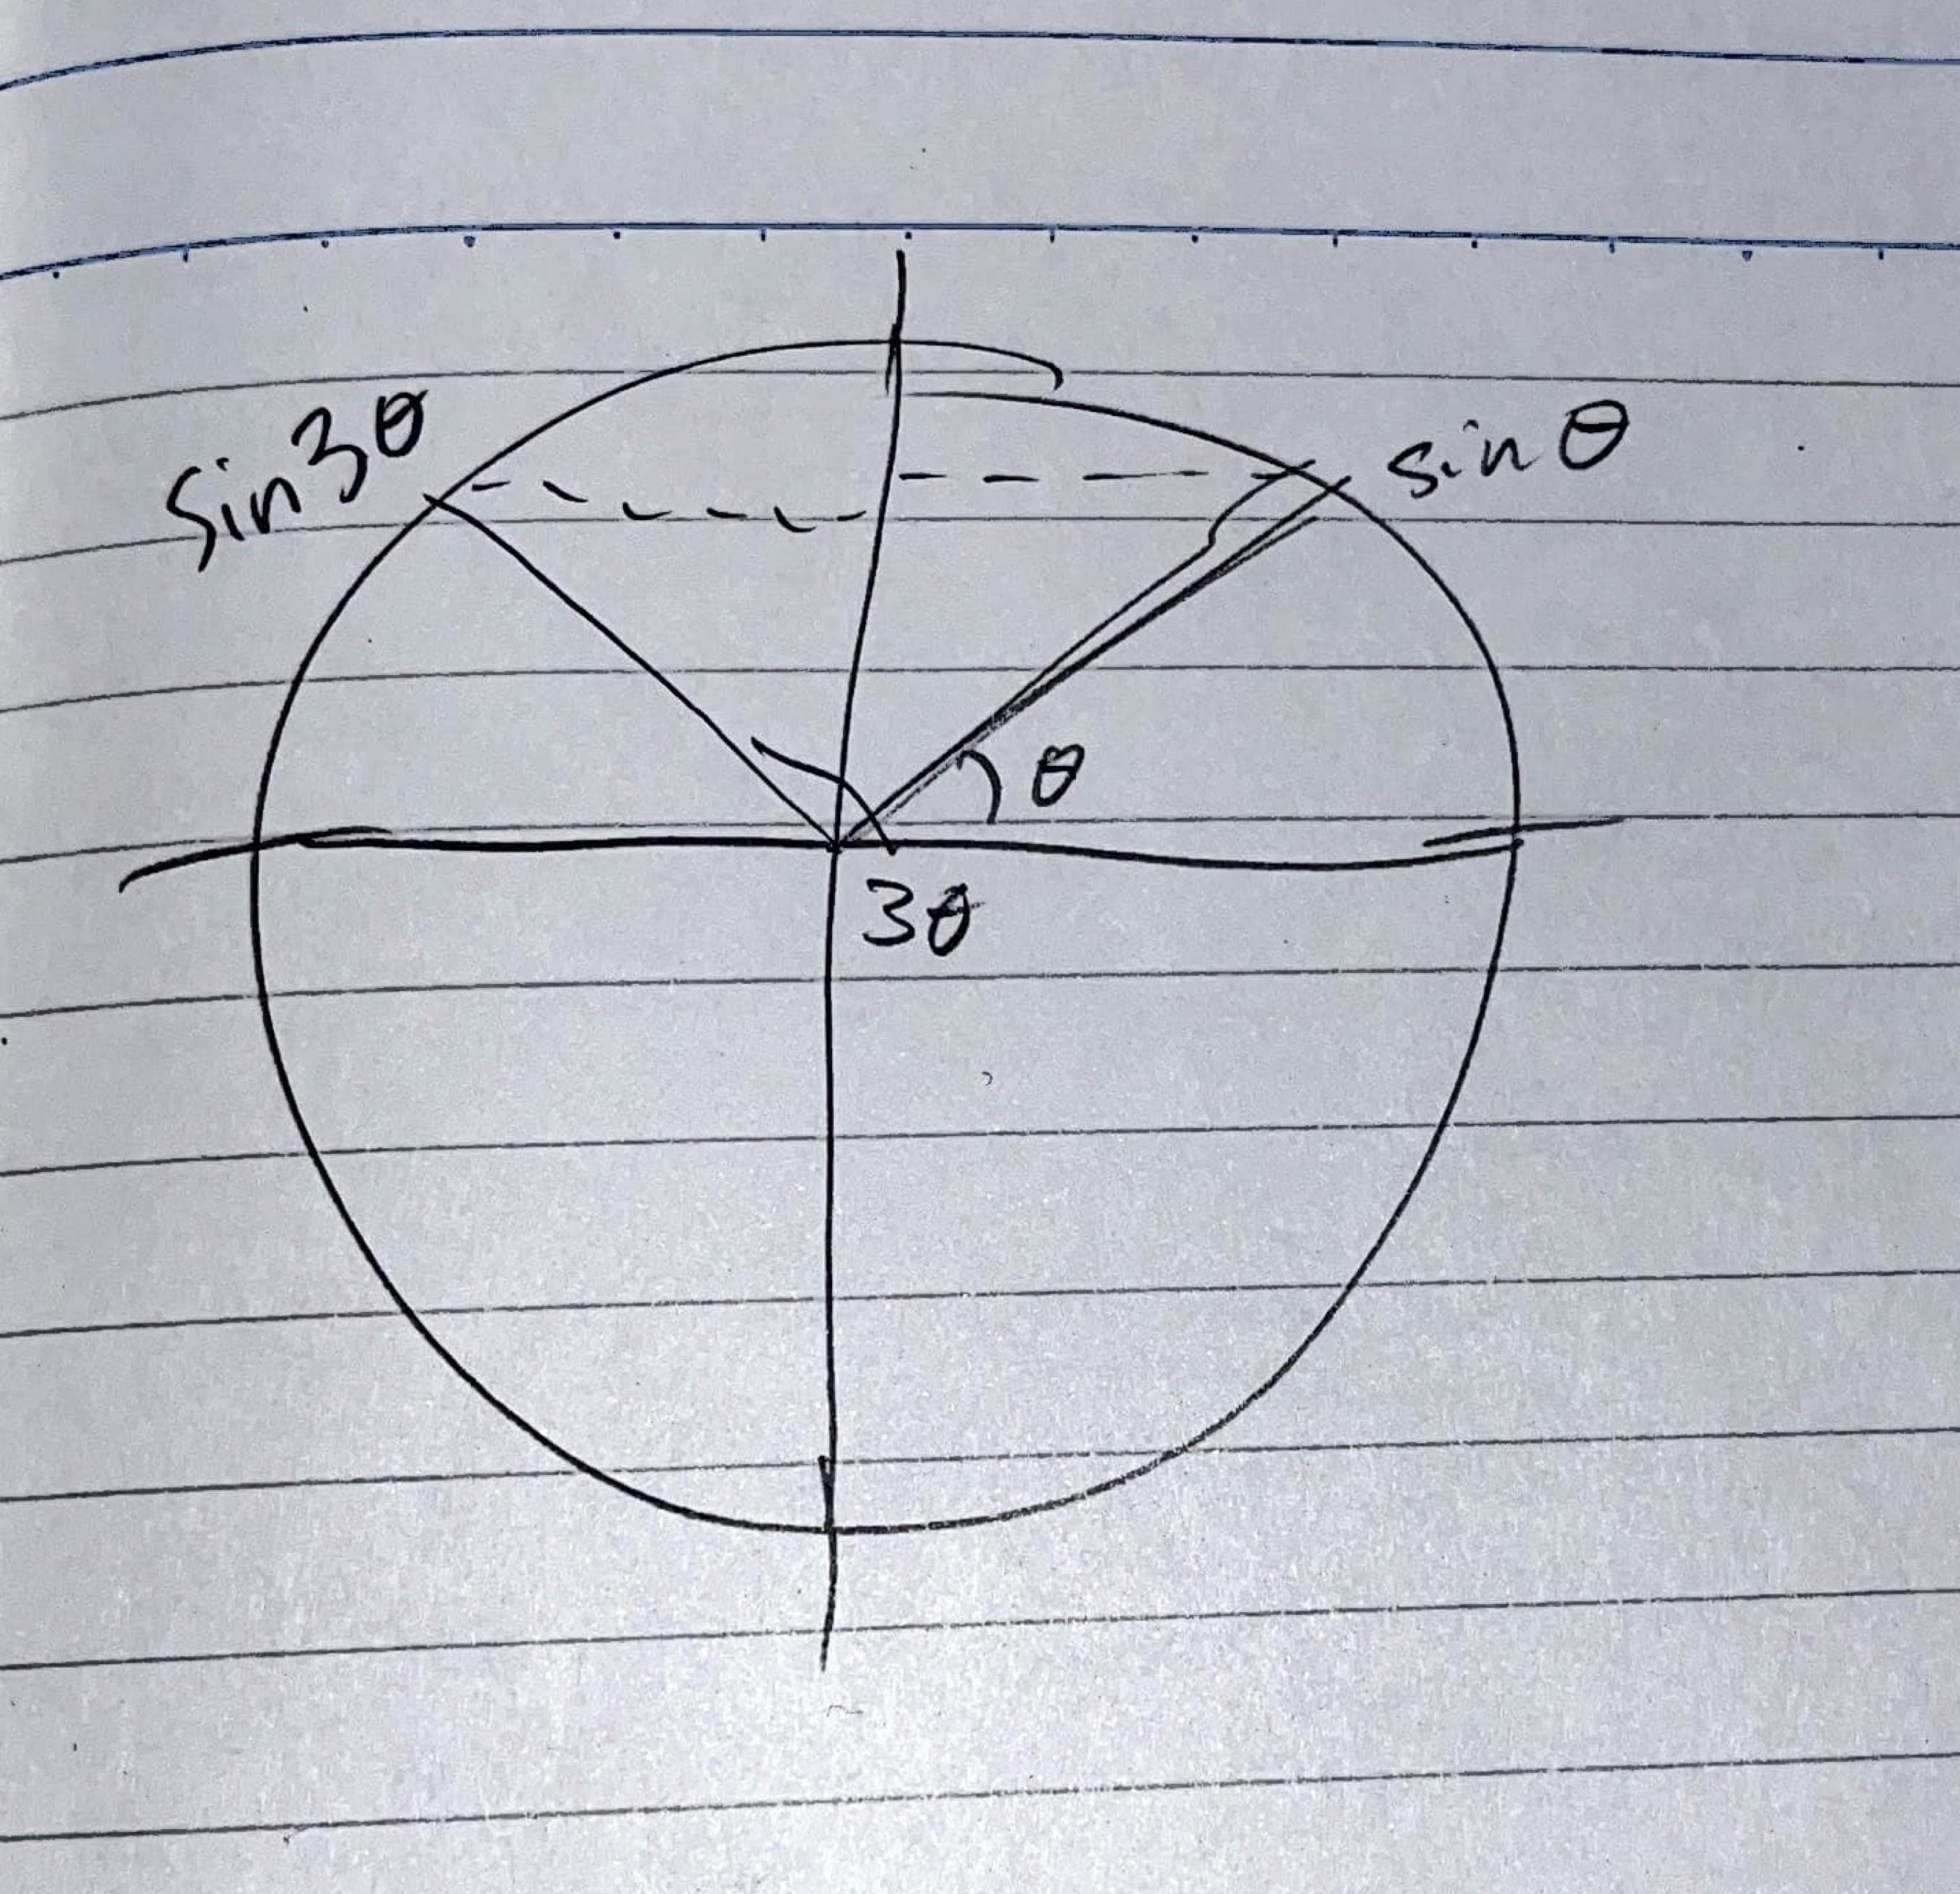 sin3θ
sinθ
θ
3θ